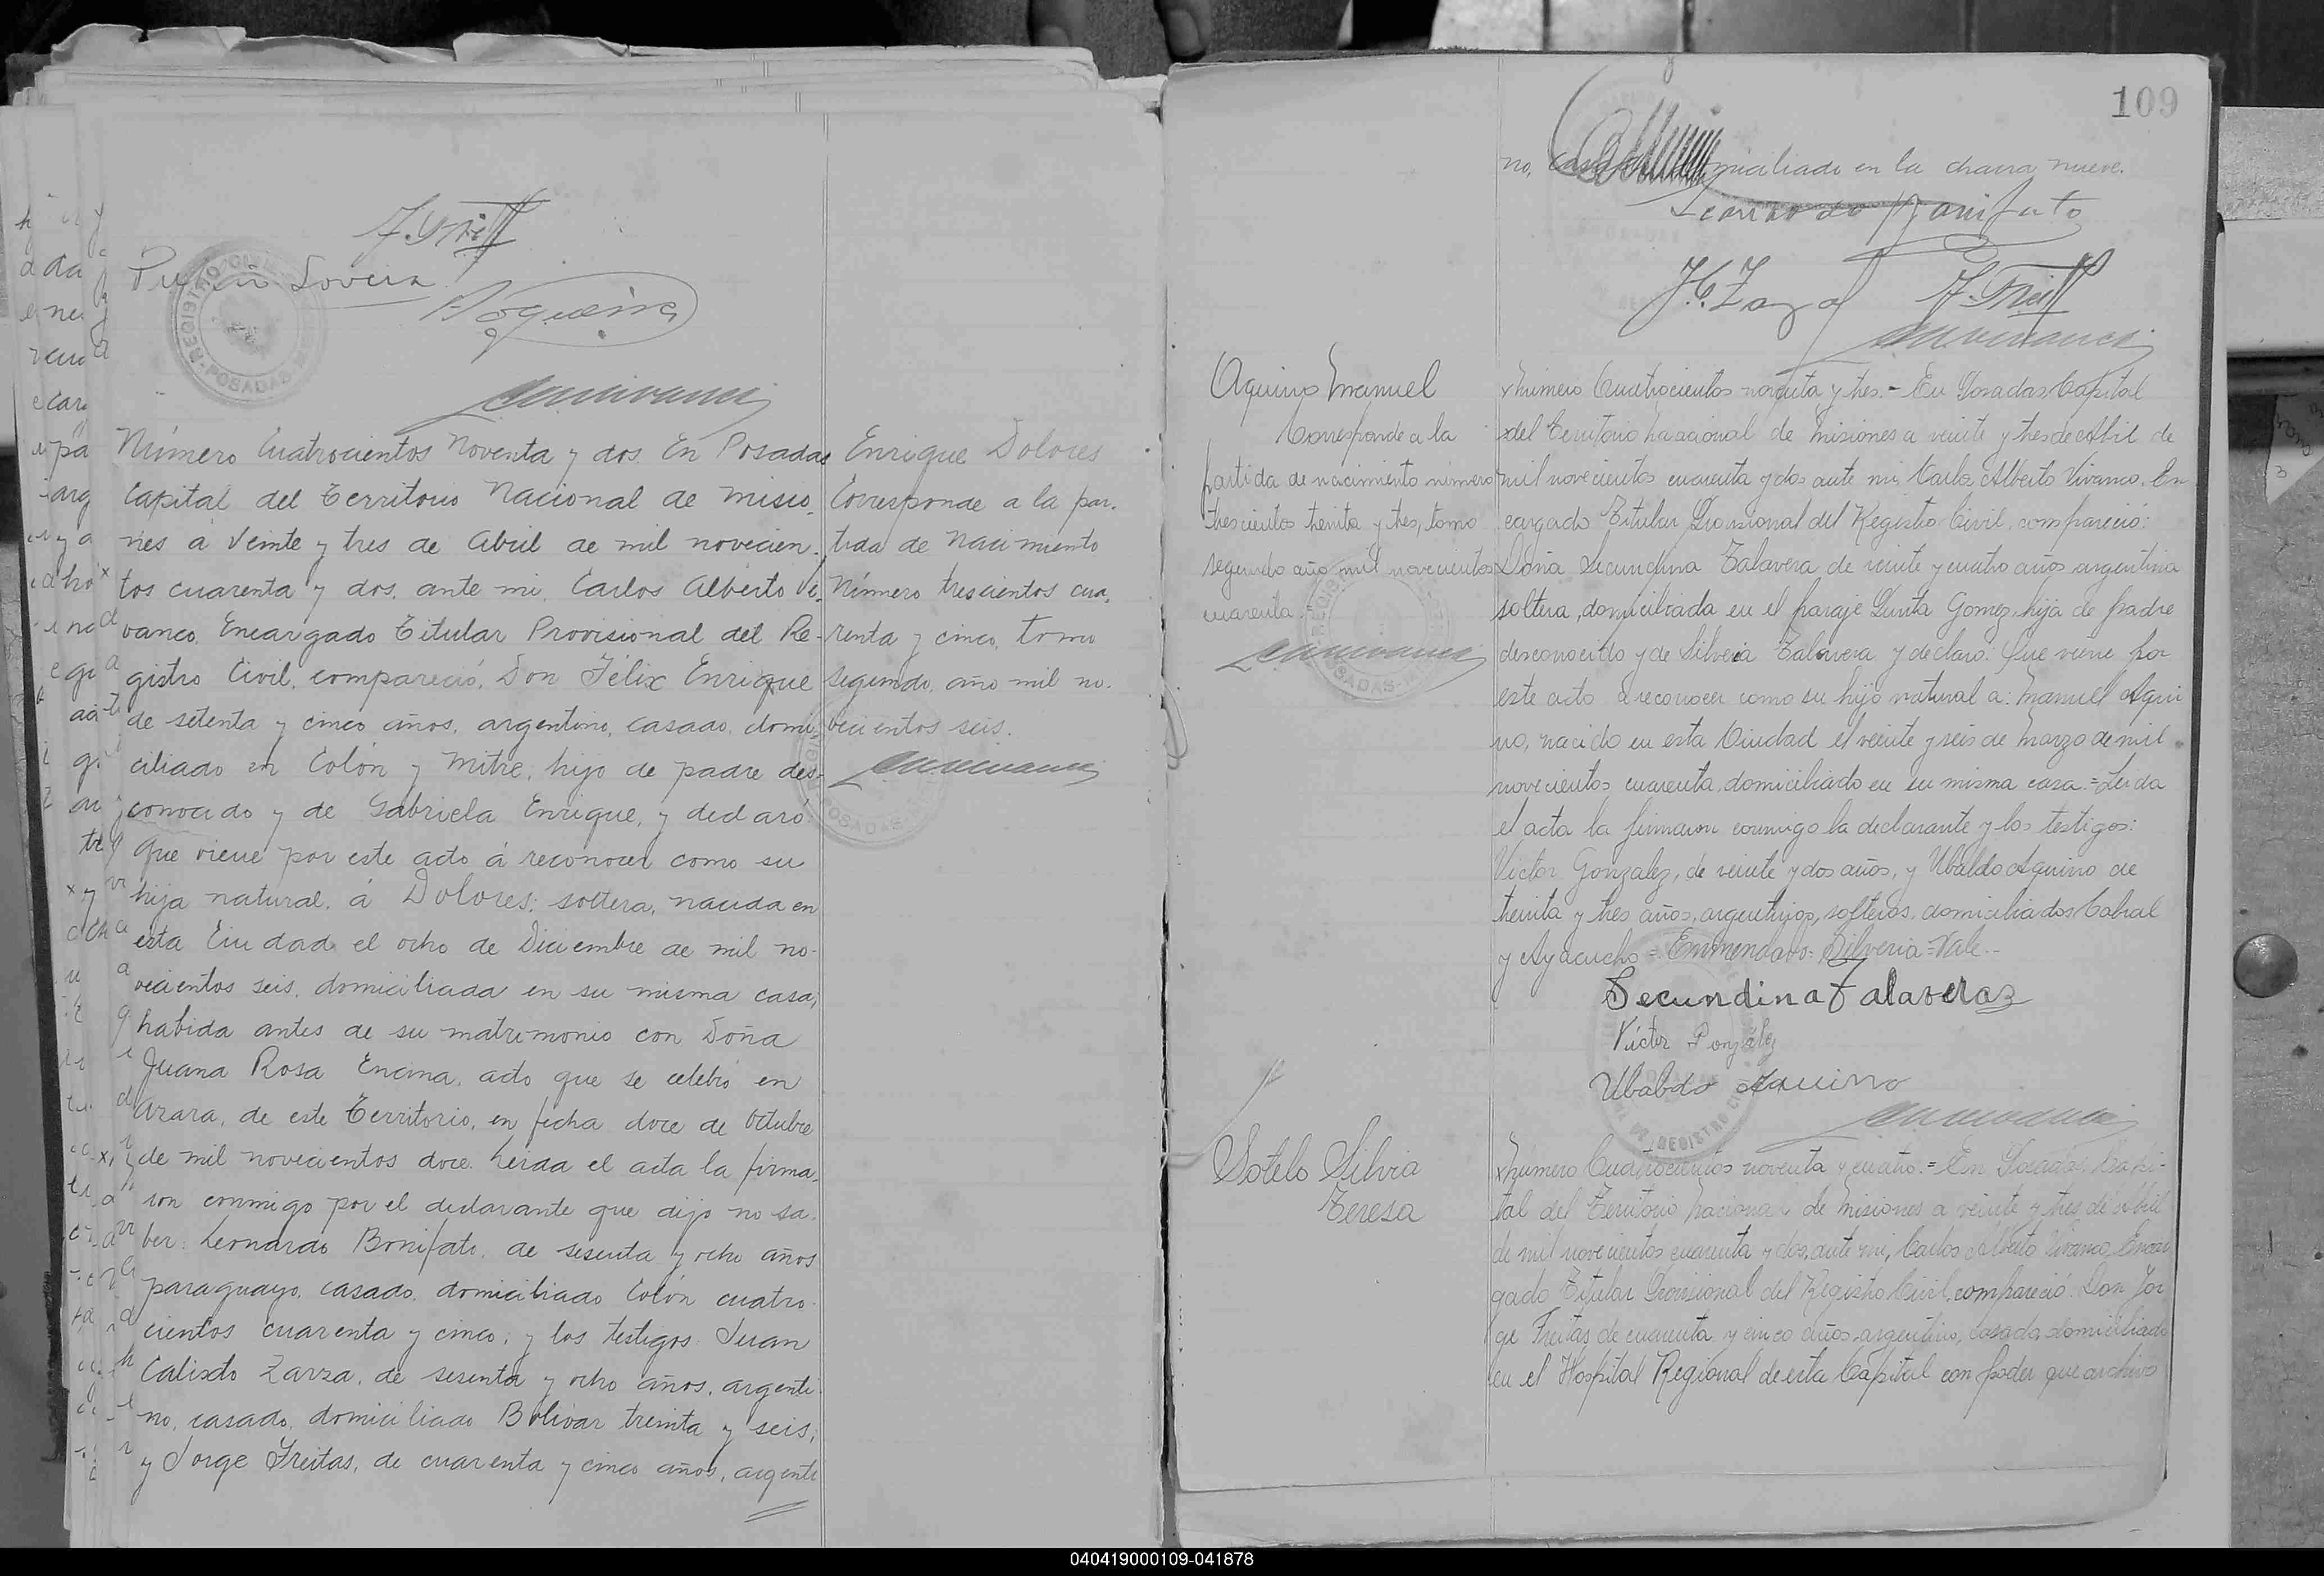 J. Freitas
Lovera
Nogueira
REGISTRO CIVIL
POSADAS
Número Cuatrocientos Noventa y dos. En Posadas
Capital del Territorio Nacional de Misio-
nes á Veinte y tres de Abril de mil novecien-
tos cuarenta y dos, ante mi, Carlos Alberto Vi-
vanco, Encargado Titular Provisional del Re-
gistro Civil, compareció, Don Félix Enrique
de setenta y cinco años, argentino, casado, domi-
ciliado en Colón y Mitre, hijo de padre des-
conocido y de Gabriela Enrique, y declaró
Que viene por este acto á reconocer como su
hija natural, á Dolores; soltera, nacida en
esta Ciudad el ocho de Diciembre de mil no-
vecientos seis, domiciliada en su misma casa,
habida antes de su matrimonio con Doña
Juana Rosa Encina, acto que se celebró en
Arara, de este Territorio, en fecha doce de Octubre
de mil novecientos doce. Leida el acta la firma-
ron conmigo por el declarante que dijo no sa-
ber: Leonardo Bonifato, de sesenta y ocho años
paraguayo, casado, domiciliado Colón cuatro-
cientos cuarenta y cinco; y los testigos: Juan
Calixto Zarza, de sesenta y ocho años, argenti-
no, casado, domiciliado Bolivar treinta y seis,
y Jorge Freitas, de cuarenta y cinco años, argenti
Enrique Dolores
Corresponde a la par-
tida de Nacimiento
Número trescientos cua-
renta y cinco, tomo
segundo, año mil no-
vecientos seis.
109
no, casado, domiciliado en la chacra nueve.
Leonardo Bonifato
J. C. Zarza J. Freitas
Aquino Manuel
Corresponde a la
partida de nacimiento número
trescientos treinta y tres, tomo
segundo año mil novecientos
cuarenta.=
Número Cuatrocientos noventa y tres.- En Posadas Capital
del Territorio Nacional de Misiones a veinte y tres de Abril de
mil novecientos cuarenta y dos ante mi, Carlos Alberto Vivanco, En
cargado Titular Provisional del Registro Civil, compareció:
Doña Secundina Talavera de veinte y cuatro años argentina
soltera, domiciliada en el paraje Punta Gomez, hija de padre
desconocido y de Silveria Talavera y declaró: Que viene por
este acto a reconocer como su hijo natural a: Manuel Aqui
no, nacido en esta Ciudad el veinte y seis de Marzo de mil
novecientos cuarenta, domiciliado en su misma casa.= Leida
el acta la firmaron conmigo la declarante y los testigos:
Victor Gonzalez, de veinte y dos años, y Ubaldo Aquino de
treinta y tres años, argentinos, solteros, domiciliados Cabral
y Ayacucho = Enmendado: Silveria = Vale.-
Secundina Talavera
Victor Gonzalez
Ubaldo Aquino
Sotelo Silvia
Teresa
Número Cuatrocientos noventa y cuatro.= En Posadas, Capi-
tal del Territorio Nacional de Misiones a veinte y tres de Abril
de mil novecientos cuarenta y dos, ante mi, Carlos Alberto Vivanco, Encar
gado Titular Provisional del Registro Civil, compareció: Don Jor
ge Freitas de cuarenta y cinco años, argentino, casado, domiciliado
en el Hospital Regional de esta Capital con poder que archivo
040419000109-041878